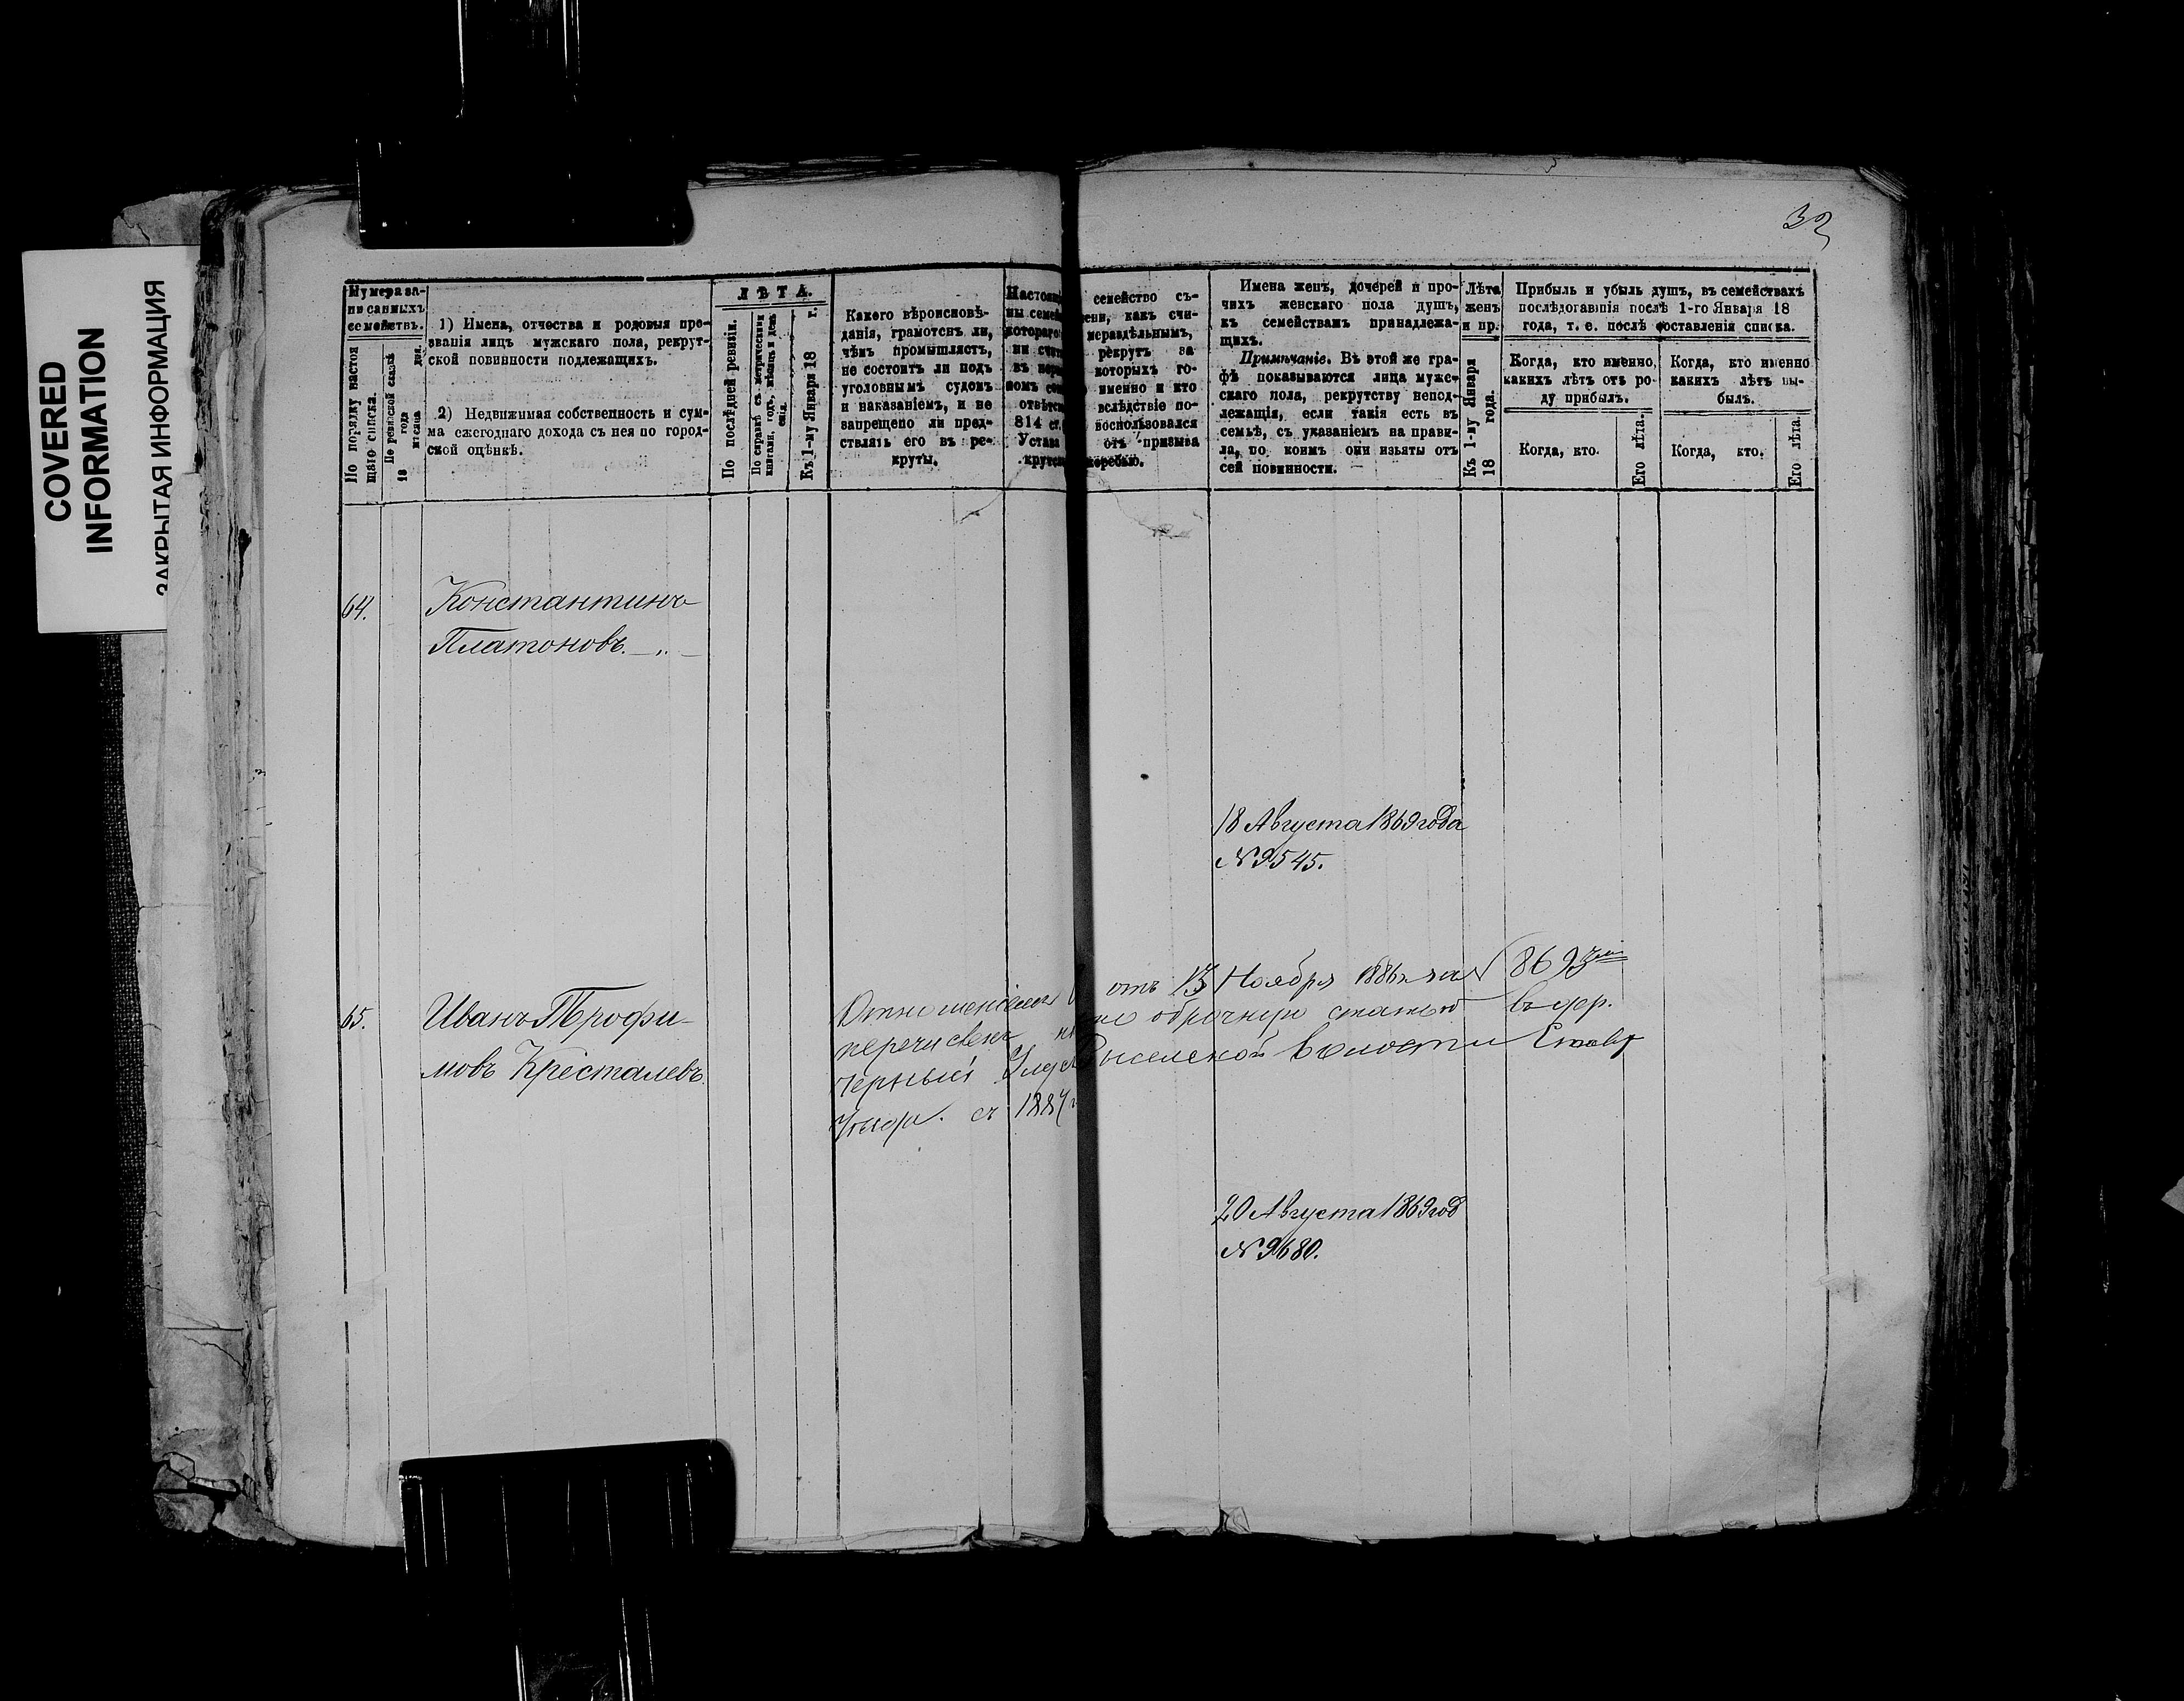 COVERED
INFORMATION
ЗАКРЫТАЯ ИНФОРМАЦИЯ
32
Нумера за-
писанныхъ
семействъ.
По порядку настоя
щаго списка.
По ревизской сказкѣ
18 года
мѣсяца дня.
1) Имена, отчества и родовыя про-
званія лицъ мужскаго пола, рекрут-
ской повинности подлежащихъ.
2) Недвижимая собственность и сум-
ма ежегоднаго дохода съ нея по город-
ской оцѣнкѣ.
ЛѢТА.
По послѣдней ревизіи.
По справкѣ съ метрическими
книгами, годъ, мѣсяцъ и день
Къ 1-му Января 18 г.
Какого вѣроисповѣ-
данія, грамотенъ ли,
чѣмъ промышляетъ,
не состоитъ ли подъ
уголовнымъ судомъ
и наказаніемъ, и не
запрещено ли пред-
ствлять его въ ре-
круты.
семейство съ-
какъ счи-
нераздѣльнымъ,
рекрутъ за
которыхъ го-
именно и кто
вслѣдствіе по-
814 ст.
воспользовался
отъ призыва
Имена женъ, дочерей и про-
чихъ женскаго пола душъ,
къ семействамъ принадлежа-
щихъ.
Примѣчаніе. Въ этой же гра-
фѣ показываются лица муже-
скаго пола, рекрутству непод-
лежащія, если такія есть въ
семьѣ, съ указаніемъ на прави-
ла, по коимъ они изъяты отъ
сей повинности.
Лѣта
женъ
и пр.
Къ 1-му Января
18 года.
Прибыль и убыль душъ, въ семействахъ
послѣдовавшія послѣ 1-го Января 18
года, т. е. послѣ составленія списка.
Когда, кто именно,
какихъ лѣтъ отъ ро-
ду прибылъ.
Когда, кто именно
какихъ лѣтъ вы-
былъ.
Когда, кто.
Его лѣта.
Когда, кто.
Его лѣта.
64.
Константинъ
Платоновъ. — „ —
18 Августа 1869 года
№ 9545.
65.
Иванъ Трофи-
мовъ Кристалевъ.
Отношеніемъ отъ 13 Ноября 1886 г. за № 8693
перечисленъ на оброчную статью въ дер.
волости
съ 1887 г.
20 Августа 1869 год
№ 9680.